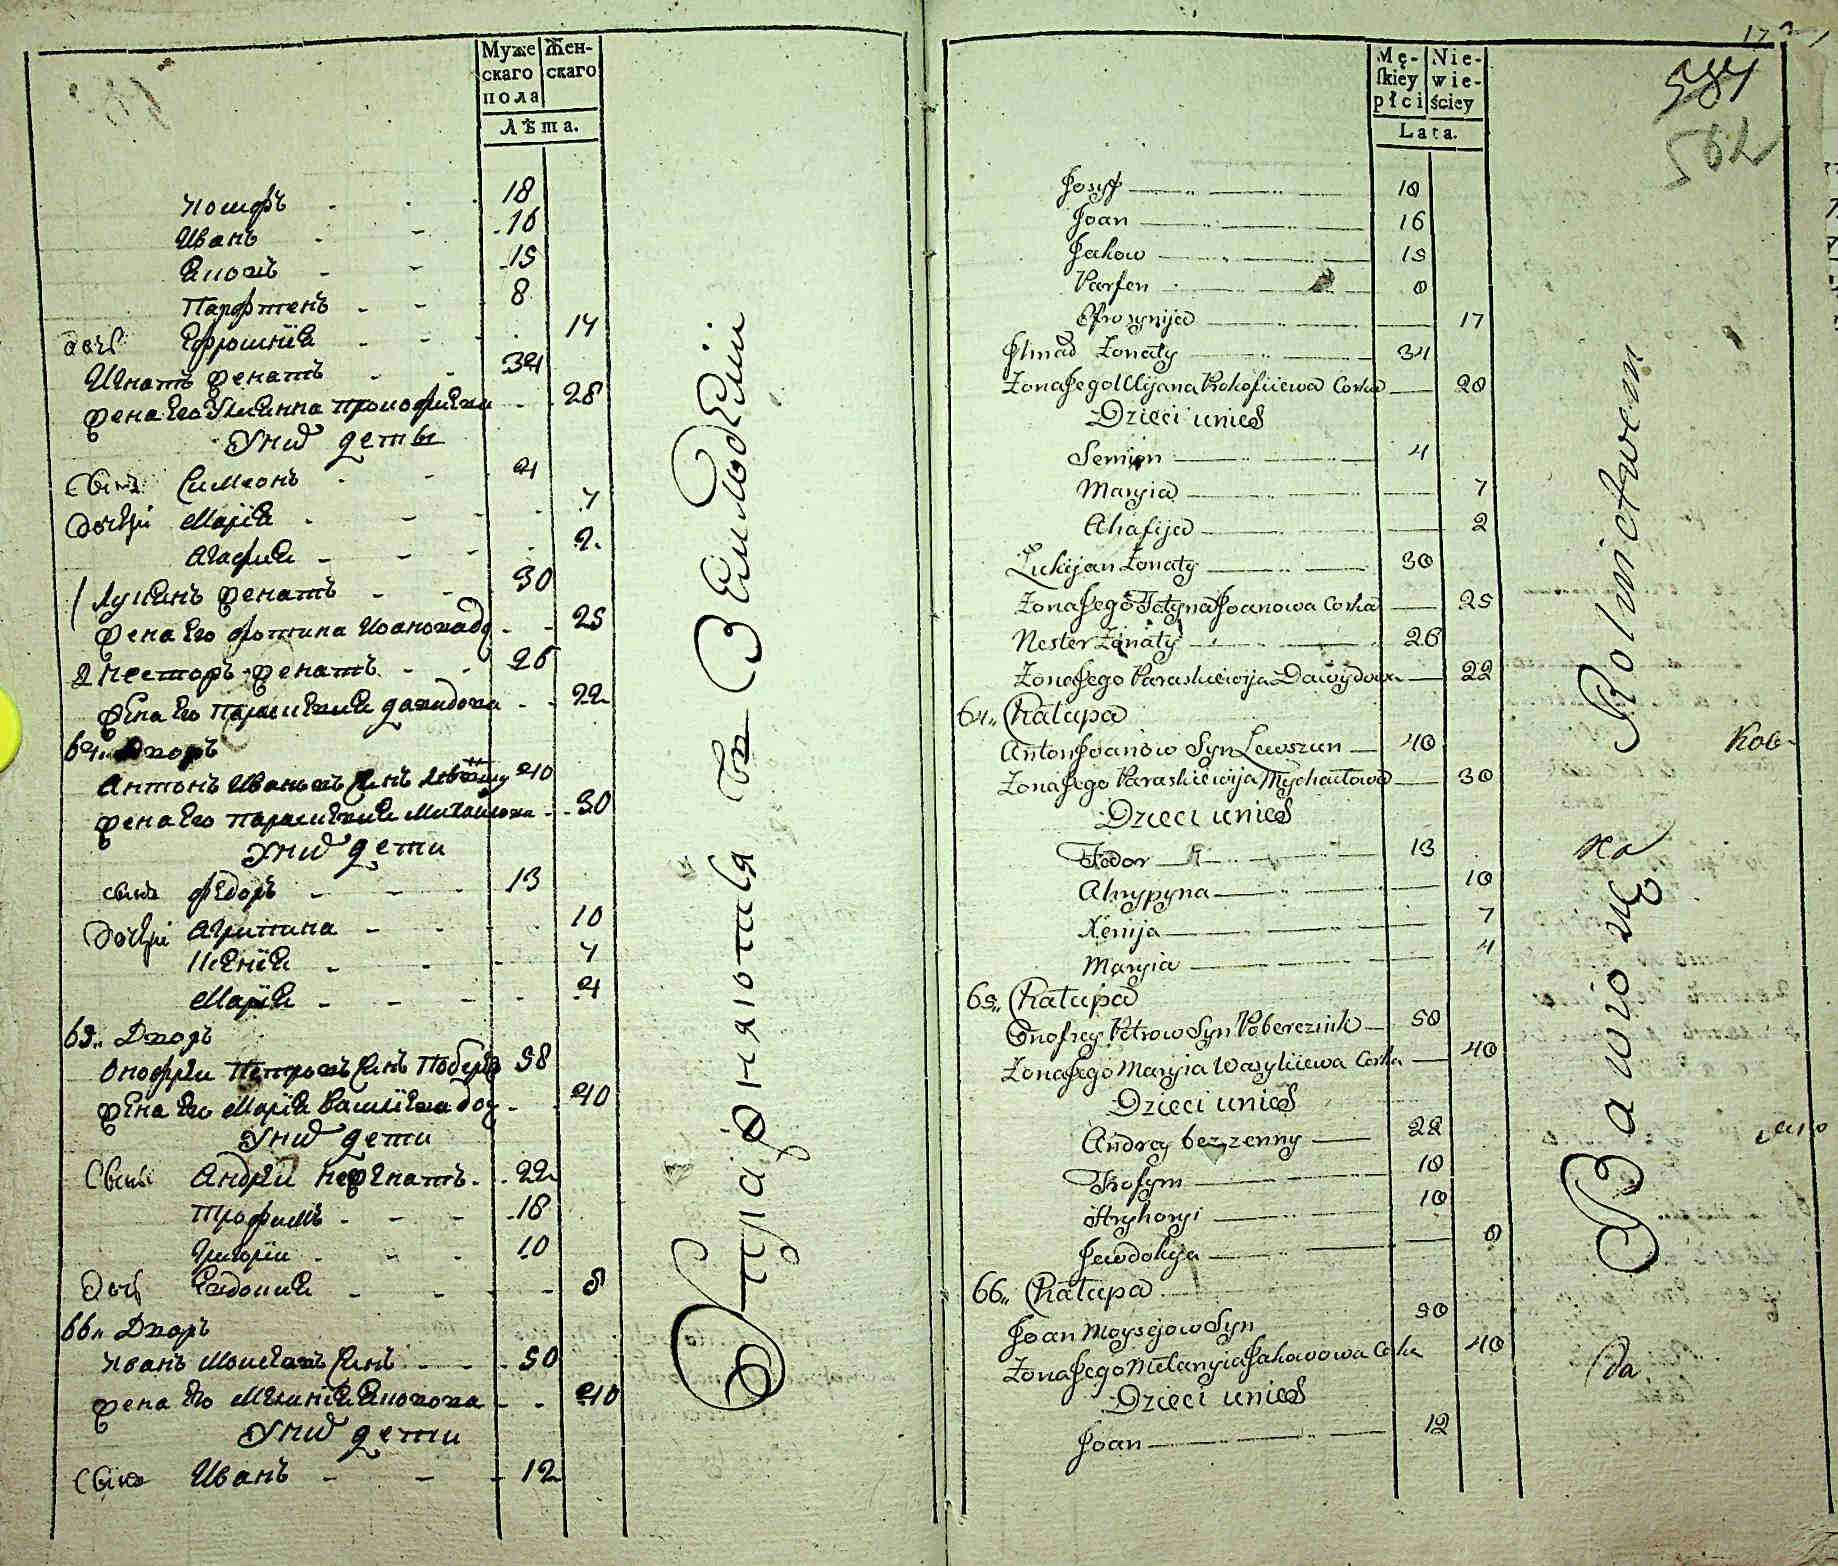 Муже Жен-
скаго скаго
пола
Лѣта.
Иосифъ 18
Иванъ 16
Яковъ 15
Парфтенъ 8
дочь Ефросинїя 17
Игнатъ женатъ 34
жена Его Улиянна Прокофиева 28
Уних дети
сынъ Симеонъ 4
дочери Марїя 7
Агафия 2
Лукиянъ женатъ 30
жена Его фотина Иоанова до 25
2 Несторъ женатъ 26
жена Его Параскевия давидова 22
64 Дворъ
Антонъ Ивановъ Синъ 40
жена Его Параскевия Михаилова 30
Уних дети
сынъ федоръ 13
дочери Агрипина 10
Ксенїя 7
Марїя 4
65 Дворъ
Онофри Петровъ Синъ Побере 58
жена Его Марїя Василїева до 40
Уних дети
Сыны Андрей нежинатъ 22
Трофимъ 18
Григорїи 10
дочь Евдокия 8
66 Дворъ
Иванъ Моисеовъ Синъ 50
жена Его Меланїя Яковова 40
Уних дети
Сынъ Иванъ 12
Упражняються въ Земледелїи
Mę- Nie-
skiey wie-
płci ściey
Lata.
581
562
Josyf 18
Joan 16
Jakow 15
Parfen 8
Efrosynija 17
Ihnad Żonaty 34
Żona Jego Ulijana Prokofiiewa Corka 28
Dzieci unich
Semion 4
Maryia 7
Ahafija 2
Łukijan Żonaty 30
Żona Jego Fotyna Joanowa Corka 25
Nester Żonaty 26
Żona Jego Paraskiewija Dawydowa 22
64 Chałupa
Anton Joanow Syn Lewszun 40
Żona Jego Paraskiewija Mychaiłowa 30
Dzieci unich
Fedor 13
Ahrypyna 10
Xenija 7
Maryia 4
65 Chałupa
Onofrey Petrow Syn Pobereznik 58
Żona Jego Maryia Wasyliiewa Corka 40
Dzieci unich
Andrey bez zenny 22
Trofym 18
Hryhoryi 10
Jewdokija 8
66 Chałupa
Joan Moysejow Syn 50
Żona Jego Melanyia Jakowowa Corka 40
Dzieci unich
Joan 12
Bawią się Rolnictwem